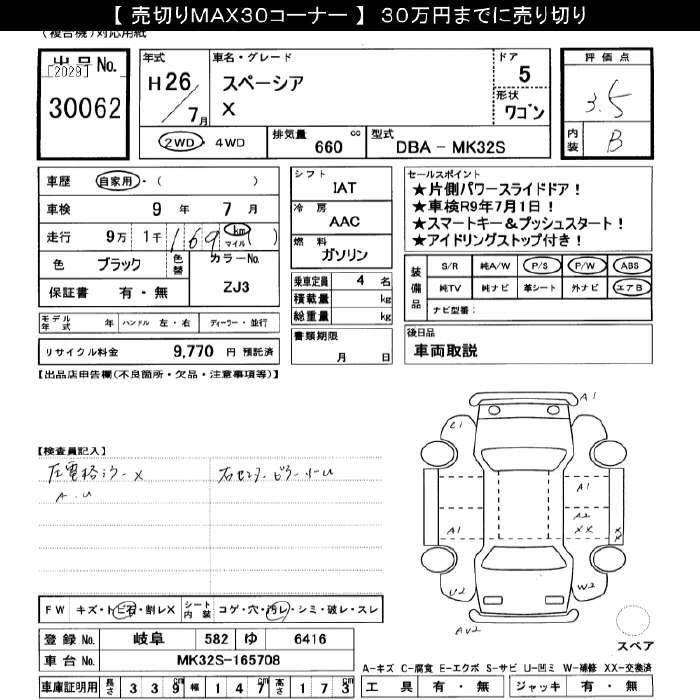 【 売切りMAX30コーナー 】 30万円までに売り切り
(複合機)対応用紙
出品No.
[2029]
30062
年式
H26/7月
車名・グレード
スペーシア
X
ドア
5
形状
ワゴン
評価点
3.5
内装
B
2WD・4WD
排気量 660 cc
型式 DBA－MK32S
車歴 自家用・( )
車検 9年 7月
走行 9万1千169 km マイル ( )
色 ブラック
色替
カラーNo.
ZJ3
保証書 有・無
シフト
IAT
冷房
AAC
燃料
ガソリン
乗車定員 4 名
積載量 kg
総重量 kg
書類期限
月 日
セールスポイント
★片側パワースライドドア！
★車検R9年7月1日！
★スマートキー＆プッシュスタート！
★アイドリングストップ付き！
装備品
S/R 純A/W P/S P/W ABS
純TV 純ナビ 革シート 外ナビ エアB
ナビ型番：
モデル年式 年 ハンドル 左・右 ディーラー・並行
リサイクル料金 9,770 円 預託済
後日品
車両取説
【出品店申告欄(不良箇所・欠品・注意事項等)】
【検査員記入】
左電格ミラーX
A.U
右センターピラー小U
A1
C1
A1
A2
XX
A1
U2
W2
AU2
FW キズ・トビ石・割レX
シート内装 コゲ・穴・汚レ・シミ・破レ・スレ
スペア
登録No. 岐阜 582 ゆ 6416
車台No. MK32S-165708
A-キズ C-腐食 E-エクボ S-サビ U-凹ミ W-補修 XX-交換済
車庫証明用 長さ 339cm 幅 147cm 高さ 173cm
工具 有・無 ジャッキ 有・無